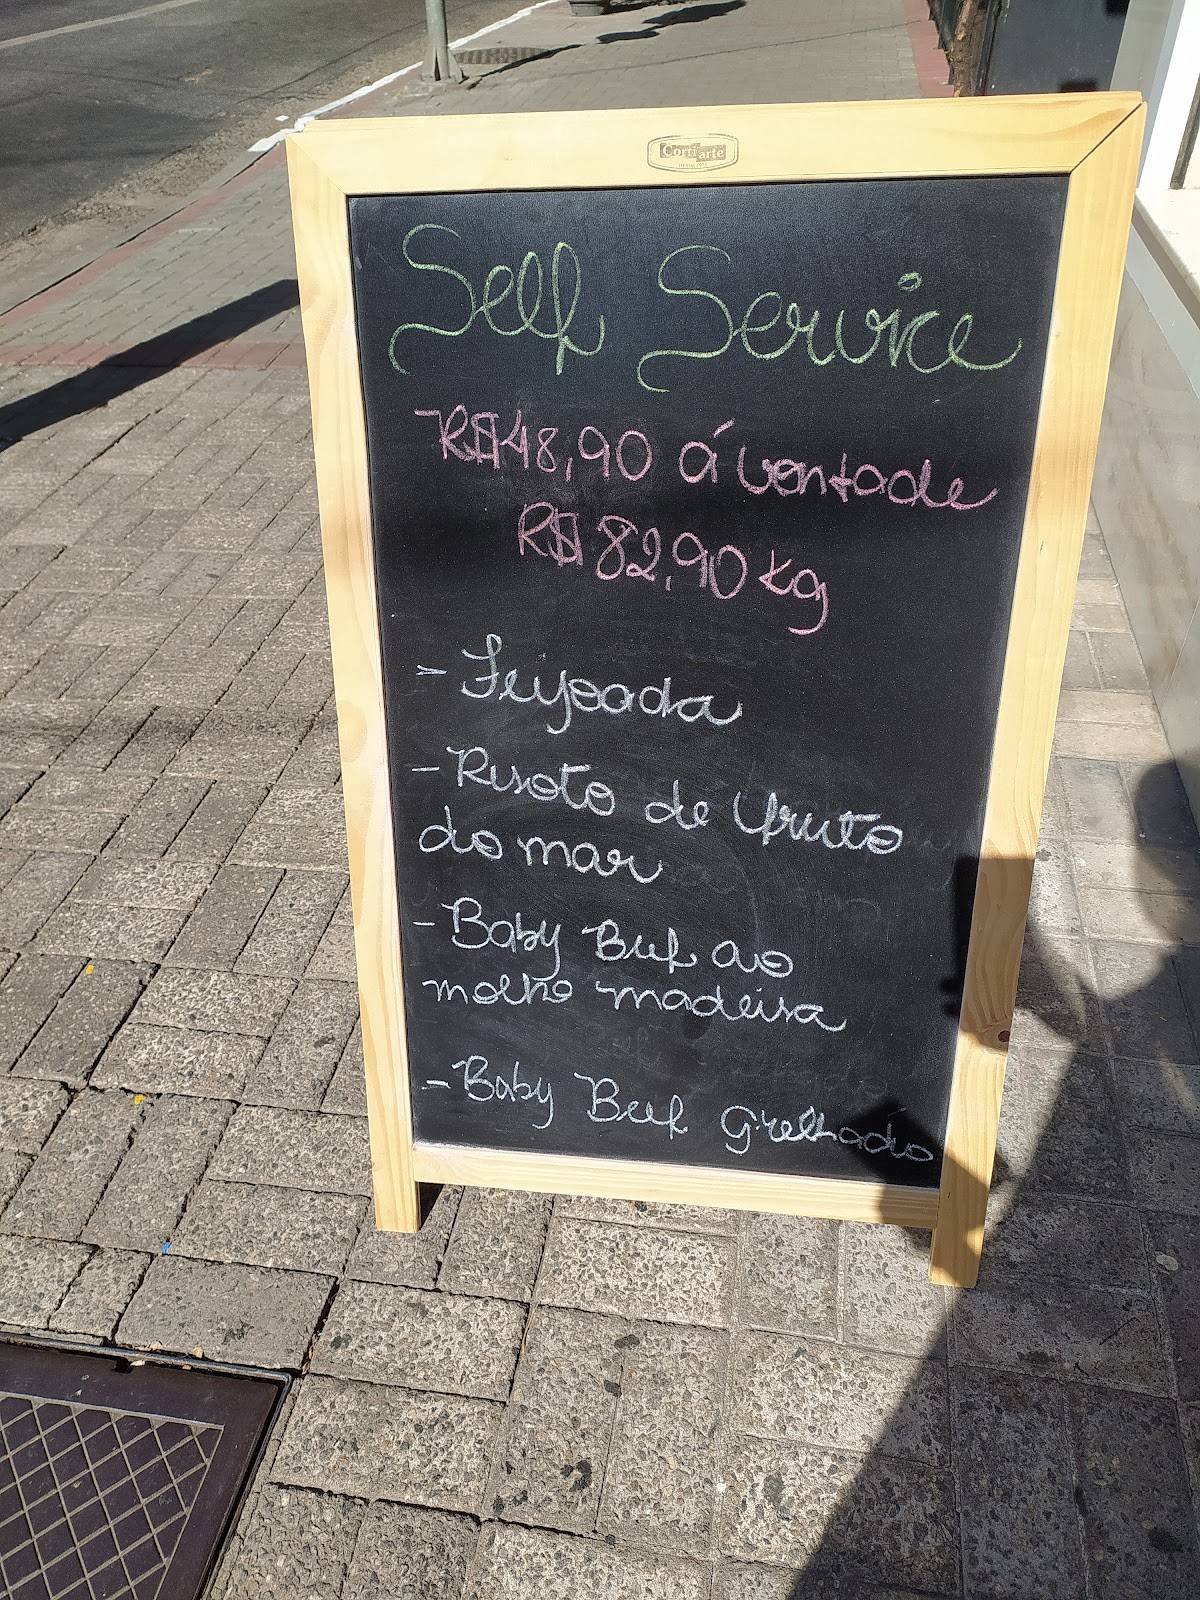 Cortiarte
Self Service
R$48,90 á vontade
R$82,90 kg
- Feijoada
- Risoto de fruto
do mar
- Baby Bief ao
molho madeira
- Baby Beef Grelhado